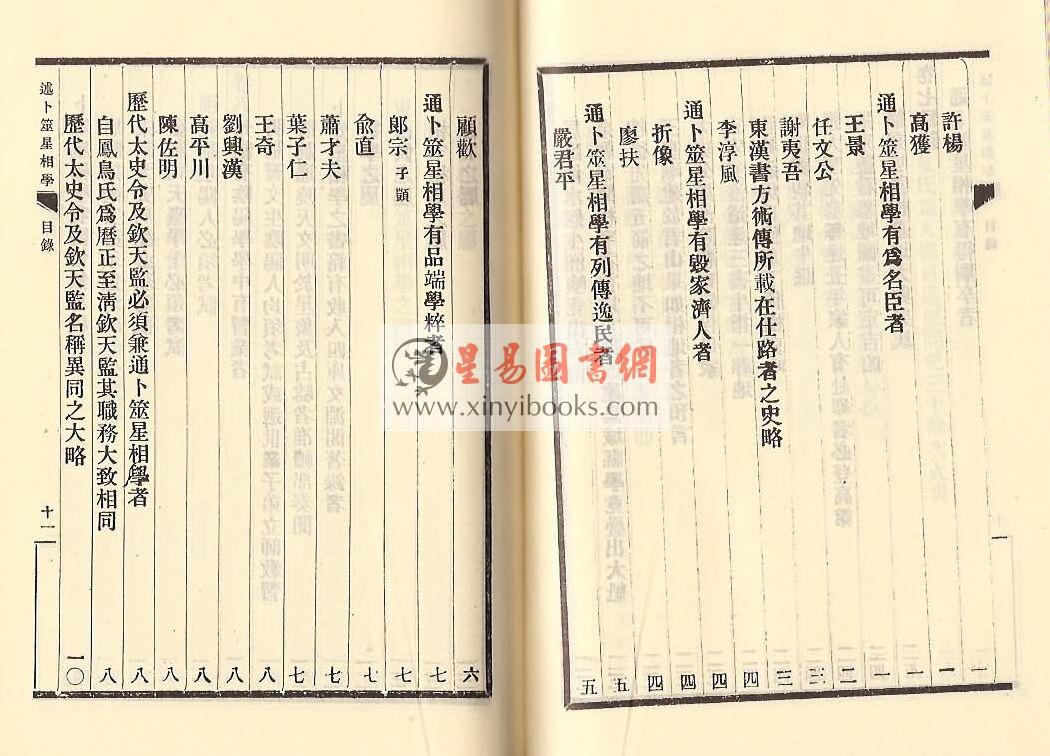 許楊 一
高獲 一
通卜筮星相學有爲名臣者 一
王景 二
任文公 三
謝夷吾 三
東漢書方術傳所載在仕路者之史略 四
李淳風 四
通卜筮星相學有毀家濟人者 四
折像 四
通卜筮星相學有列傳逸民者 五
廖扶 五
嚴君平 五
顧歡 六
通卜筮星相學有品端學粹者 七
郞宗 子顗 七
俞直 七
蕭才夫 七
葉子仁 七
王奇 八
劉興漢 八
高平川 八
陳佐明 八
歷代太史令及欽天監必須兼通卜筮星相學者 八
自鳳鳥氏爲曆正至淸欽天監其職務大致相同 八
歷代太史令及欽天監名稱異同之大略 一〇
述卜筮星相學 目錄 十一
星易圖書網
www.xinyibooks.com